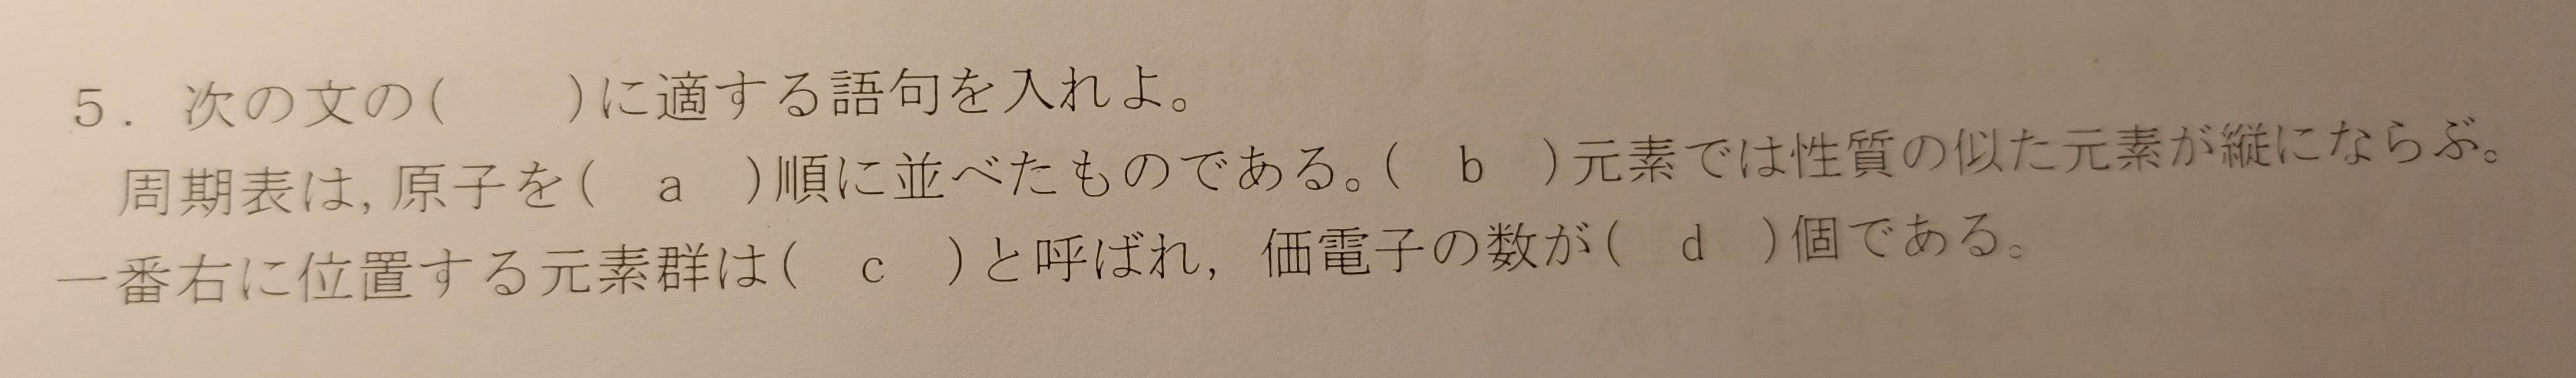 5. 次の文の(　　)に適する語句を入れよ。
周期表は,原子を(　a　)順に並べたものである。(　b　)元素では性質の似た元素が縦にならぶ。
一番右に位置する元素群は(　c　)と呼ばれ, 価電子の数が(　d　)個である。